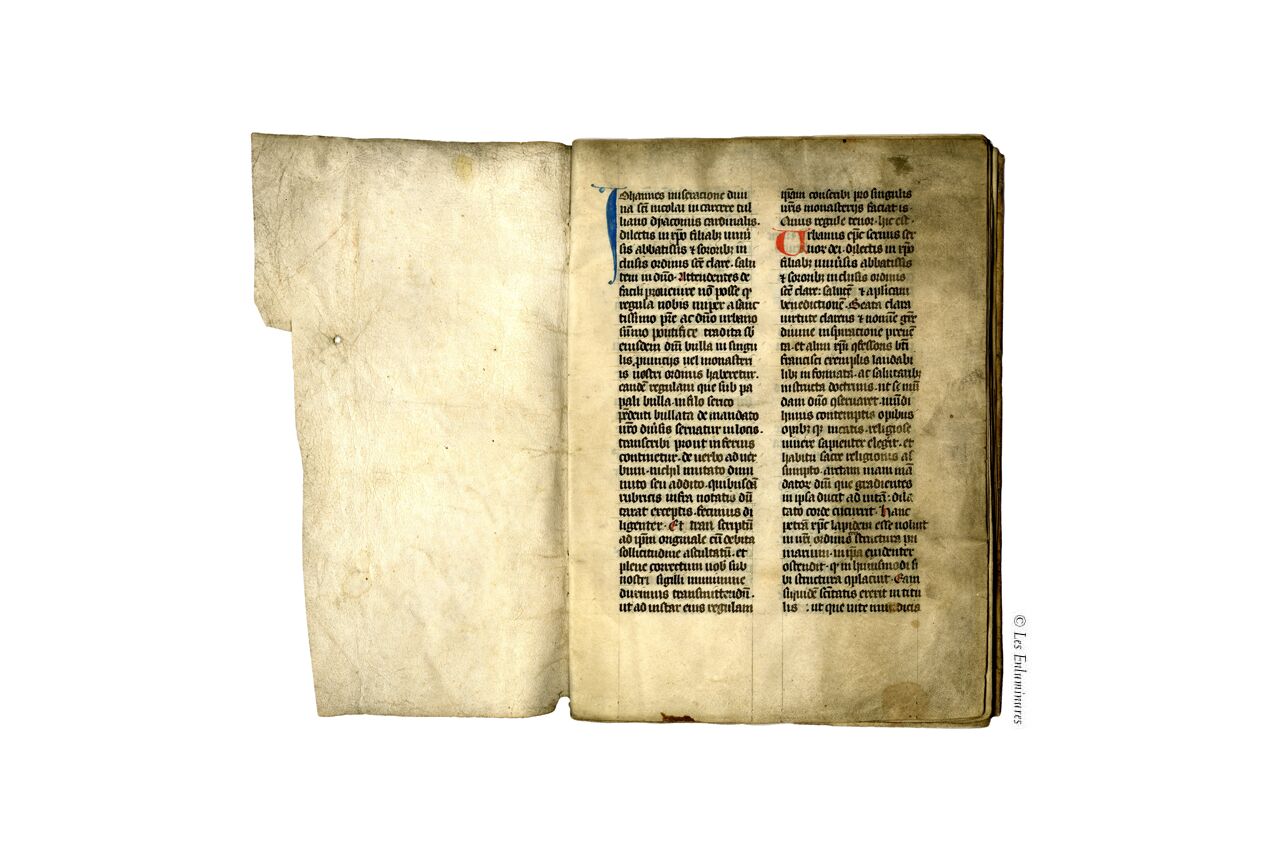 Johannes miseracione diui
na sci nicolai in carcere tul
liano dyaconus cardinalis.
dilectis in xpo filiabꝫ uniu
sis abbatissis ⁊ sororibꝫ in
clusis ordinis sce clare. salu
tem in dno. Attendentes de
facili prouenire non posse qͥ
regula nobis nuper a sanc
tissimo pre ac dno urbano
summo pontifice tradita sb
eiusdem dni bulla in singu
lis prouincijs uel monasteri
is nostri ordinis haberetur.
eandē regulam que sub pa
pali bulla in filo serico
pendenti bullata de mandato
nro diuīsis seruatur in locis.
transcribi prout inferius
continetur. de uerbo ad uer
bum. nichil mutato dimi
nuto seu addito. quibusdā
rubricis infra notatis dū
taxat exceptis. fecimus di
ligenter. Et transcriptū
ad ipm originale cū debita
sollicitudine ascultatū. et
plene correctum uobꝫ sub
nostri sigilli munimine
duximus transmittendū.
ut ad instar eius regulam
ipsam conscribi pro singulis
uris monasterijs faciatis.
Cuius regule tenor. hic est.
Urbanus epc seruus ser
uor dei. dilectis in xpo
filiabꝫ uniūsis abbatissis
⁊ sororibꝫ inclusis ordinis
sce clare: salutē ⁊ aplicam
benedictionē. Beata clara
virtute clarens ⁊ nomine
diuine inspiracione preuen
ta. et almi xpi ɔfessoris bti
francisci exemplis laudabi
libꝫ informata. ac salutaribꝫ
instructa doctrinis. ut se mū
dam dno ɔseruaret. mūdi
huius contemptis opibus
opibꝫ religiose
uiuere sapienter elegit. et
habitu sacre religionis as
sumpto. artam uiam mā
datorꝫ dni que gradientes
in ipsa ducit ad uitā: dila
tato corde cucurrit. Hanc
petrā xpc lapidem esse uoluit
in uri ordinis structura pri
marium. in ipsa euidenter
ostendit. ꝙ in huiusmodi si
bi structura ɔplacuit. Eam
siquidē scitatis erexit in titu
lis : ut que uite mundicis
© Les Enluminures